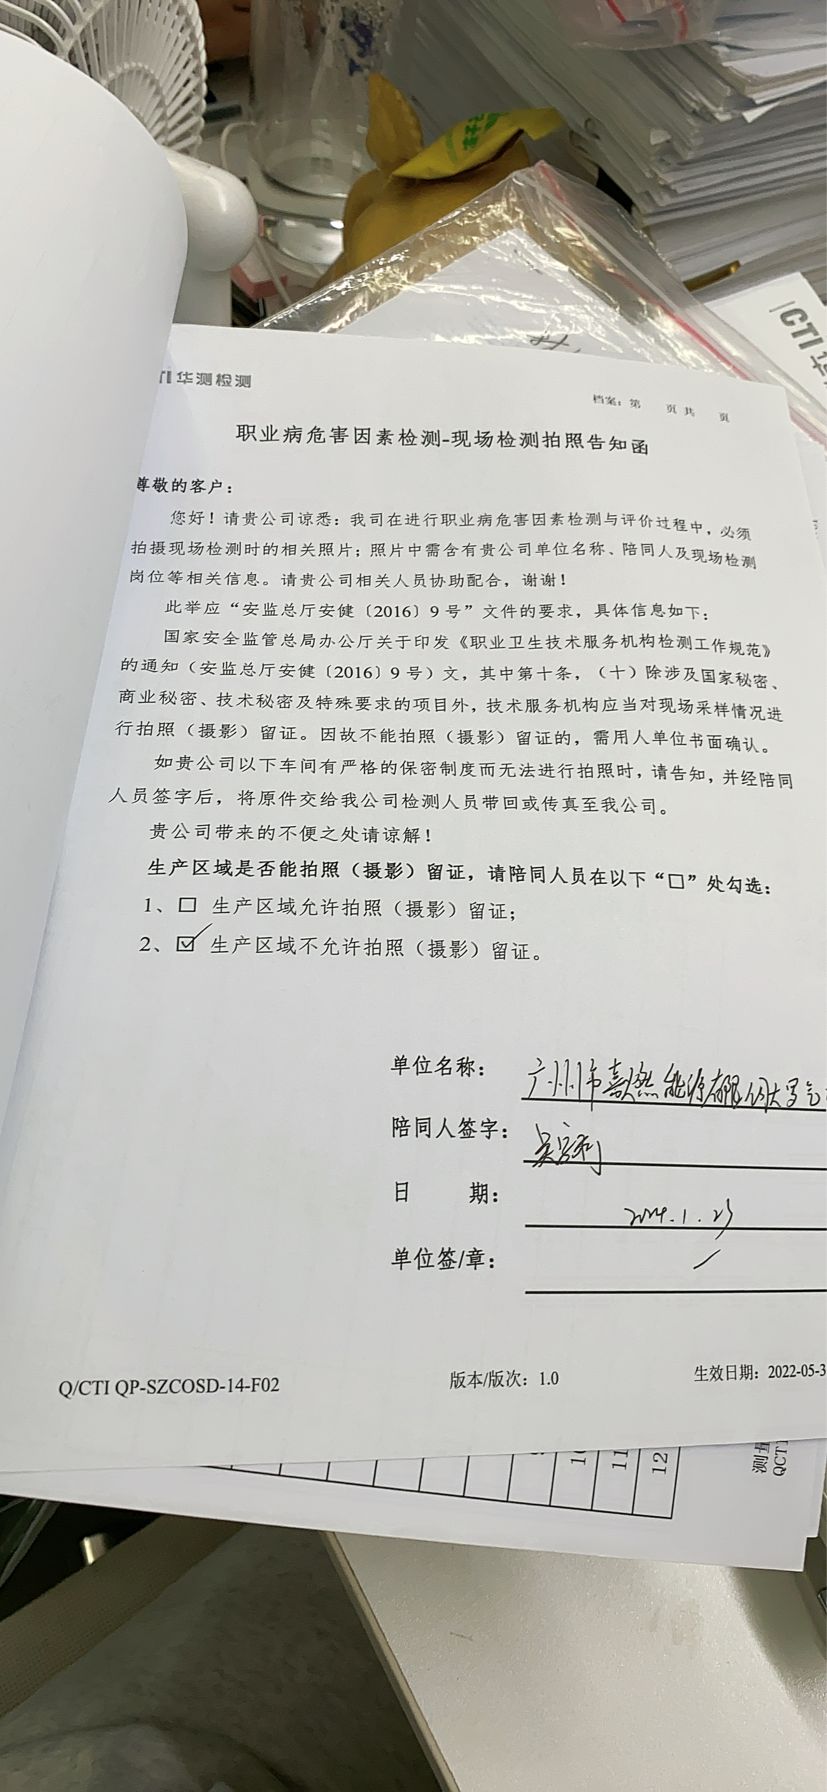 CTI 华
TI 华测检测
档案：第 页 共 页
职业病危害因素检测-现场检测拍照告知函
尊敬的客户：
您好！请贵公司谅悉：我司在进行职业病危害因素检测与评价过程中，必须
拍摄现场检测时的相关照片；照片中需含有贵公司单位名称、陪同人及现场检测
岗位等相关信息。请贵公司相关人员协助配合，谢谢！
此举应“安监总厅安健〔2016〕9 号”文件的要求，具体信息如下：
国家安全监管总局办公厅关于印发《职业卫生技术服务机构检测工作规范》
的通知（安监总厅安健〔2016〕9 号）文，其中第十条，（十）除涉及国家秘密、
商业秘密、技术秘密及特殊要求的项目外，技术服务机构应当对现场采样情况进
行拍照（摄影）留证。因故不能拍照（摄影）留证的，需用人单位书面确认。
如贵公司以下车间有严格的保密制度而无法进行拍照时，请告知，并经陪同
人员签字后，将原件交给我公司检测人员带回或传真至我公司。
贵公司带来的不便之处请谅解！
生产区域是否能拍照（摄影）留证，请陪同人员在以下“□”处勾选：
1、□ 生产区域允许拍照（摄影）留证；
2、☑ 生产区域不允许拍照（摄影）留证。
单位名称： 广州市 燃能源有限公司
陪同人签字： 吴 利
日 期： 2024.1.23
单位签/章： /
Q/CTI QP-SZCOSD-14-F02 版本/版次：1.0 生效日期：2022-05-3
10 11 12
测量
QCT